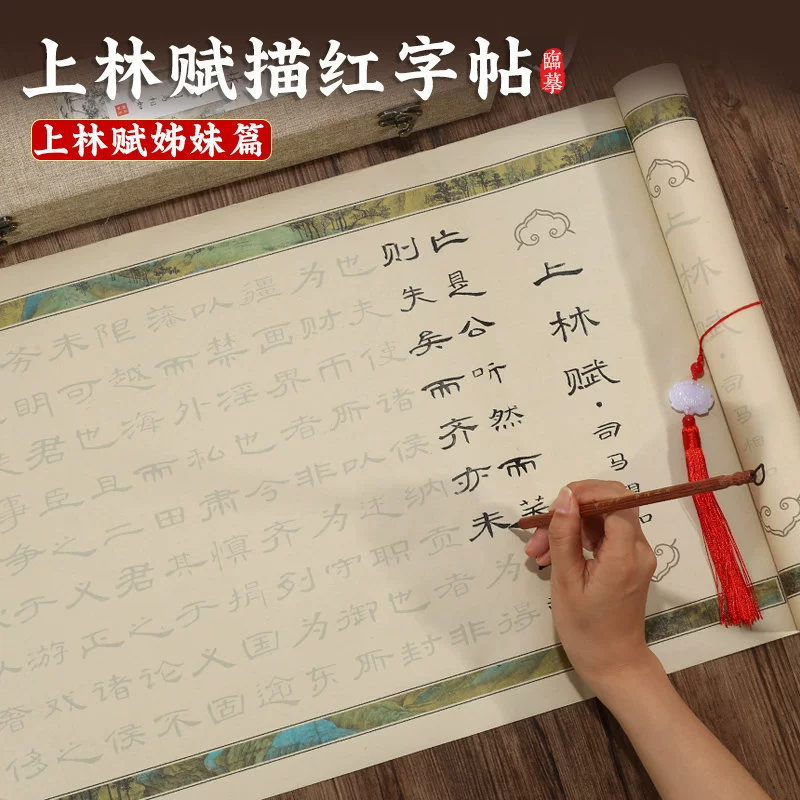 上林赋描红字帖
臨摹
上林赋姊妹篇
上林赋·司马
上林赋·司马相如
亡是公听然而
则失矣而齐亦未为得
也夫使诸侯纳贡者非
为财币所以述职也封
疆画界者非为守御所
以禁淫也今齐列为东
藩而外私肃慎捐国逾
限越海而田其于义固
未可也且二君之论不
务明君臣之义正诸侯
事争于游戏之